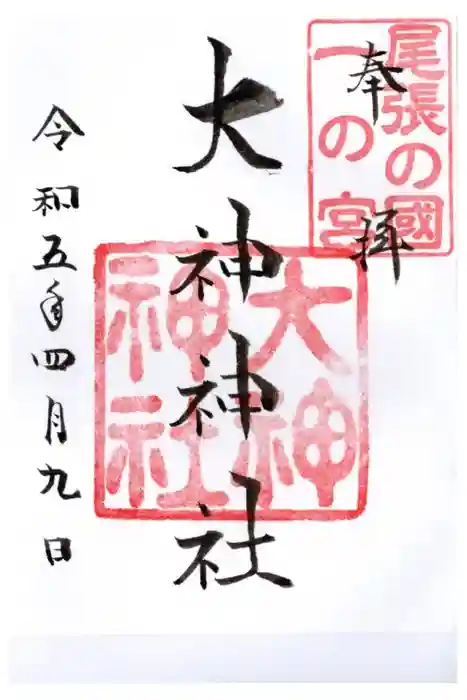 尾張の國
一の宮
奉拝
大神神社
大神
神社
令和五年四月九日